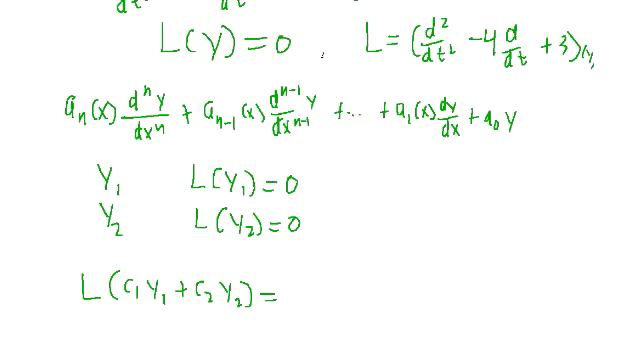 dt dt
L(y) = 0 , L = (d²/dt² - 4 d/dt + 3)(y)
aₙ(x) dⁿy/dxⁿ + aₙ₋₁(x) dⁿ⁻¹y/dxⁿ⁻¹ + ... + a₁(x) dy/dx + a₀ y
y₁ L(y₁) = 0
y₂ L(y₂) = 0
L(c₁y₁ + c₂y₂) =